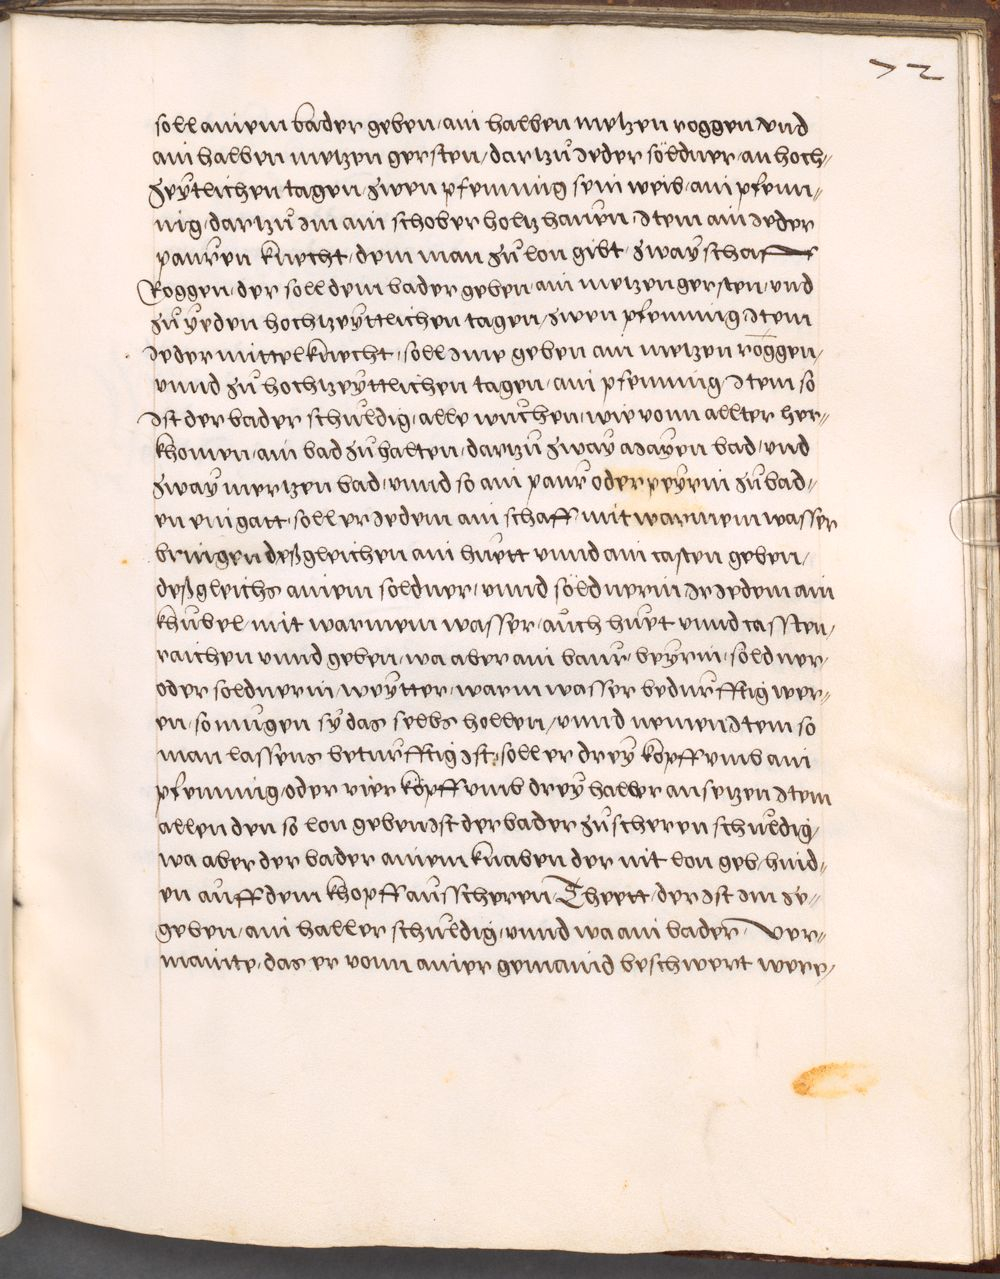 72
soll ainem bader geben, ain halben metzen roggen vnd
ain halben metzen gersten, dartzů Jeder söldner, an hoch„
zeÿtlichen tagen, zwen pfenning sein weib, ain pfenn„
nig, dartzů Im ain schober holtz hauen Item ain Jeder
pauren knecht, dem man zů lon gibt, zwaÿ schaff
Roggen, der soll dem bader geben, ain metzen gersten, vnd
zů ÿeden hochtzeÿttlichen tagen, zwen pfenning Item
Jeder mittelknecht, soll Ime geben ain metzen roggen,
vnnd zů hochtzeÿttlichen tagen, ain pfenning, Item so
Ist der bader schůldig, alle wuchen, wie vonn allter her„
khomen, ain bad zů halten, dartzů zwaÿ Maÿen bad, vnd
zwaÿ mertzen bad, vnnd so ain paur oder peÿrin zů bad„
en eingatt, soll er Jedem ain schaff mit warmem wasser
bringen deßgleichen ain huett vnnd ain casten geben,
deßgleichs ainem soldner, vnnd söldnerin Je Jedem ain
khübel, mit warmem wasser, auch huet vnnd cassten,
raichen vnnd geben, wa aber ain baur, beÿrin, soldner,
oder soldnerin, weÿtter, warm wasser bedurfftig wer„
en, so mügen sÿ das selbs hollen, vnnd nemen Item so
man lassens beturfftig Ist, soll er dreÿ köpff vmb ain
pfenning, oder vier köpff vmb dreÿ haller ansetzen Item
allen den so lon geben Ist der bader zů scheren schůldig,
wa aber der bader ainem knaben der nit lon geb, hind„
en auff dem khopff ausscheren Theett, der Ist Im ze„
geben, ain haller schůldig, vnnd wa ain bader, ver„
mainte, das er vonn ainer gemaind beschwert were,